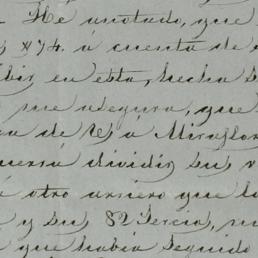 He anotado, que
$74. á cuenta de
en esta, hecha
me asegura, que
de V. á Miraflor
querrá dividir sus
á otro arriero que
y sus 82 Tercio,
que habia seguido